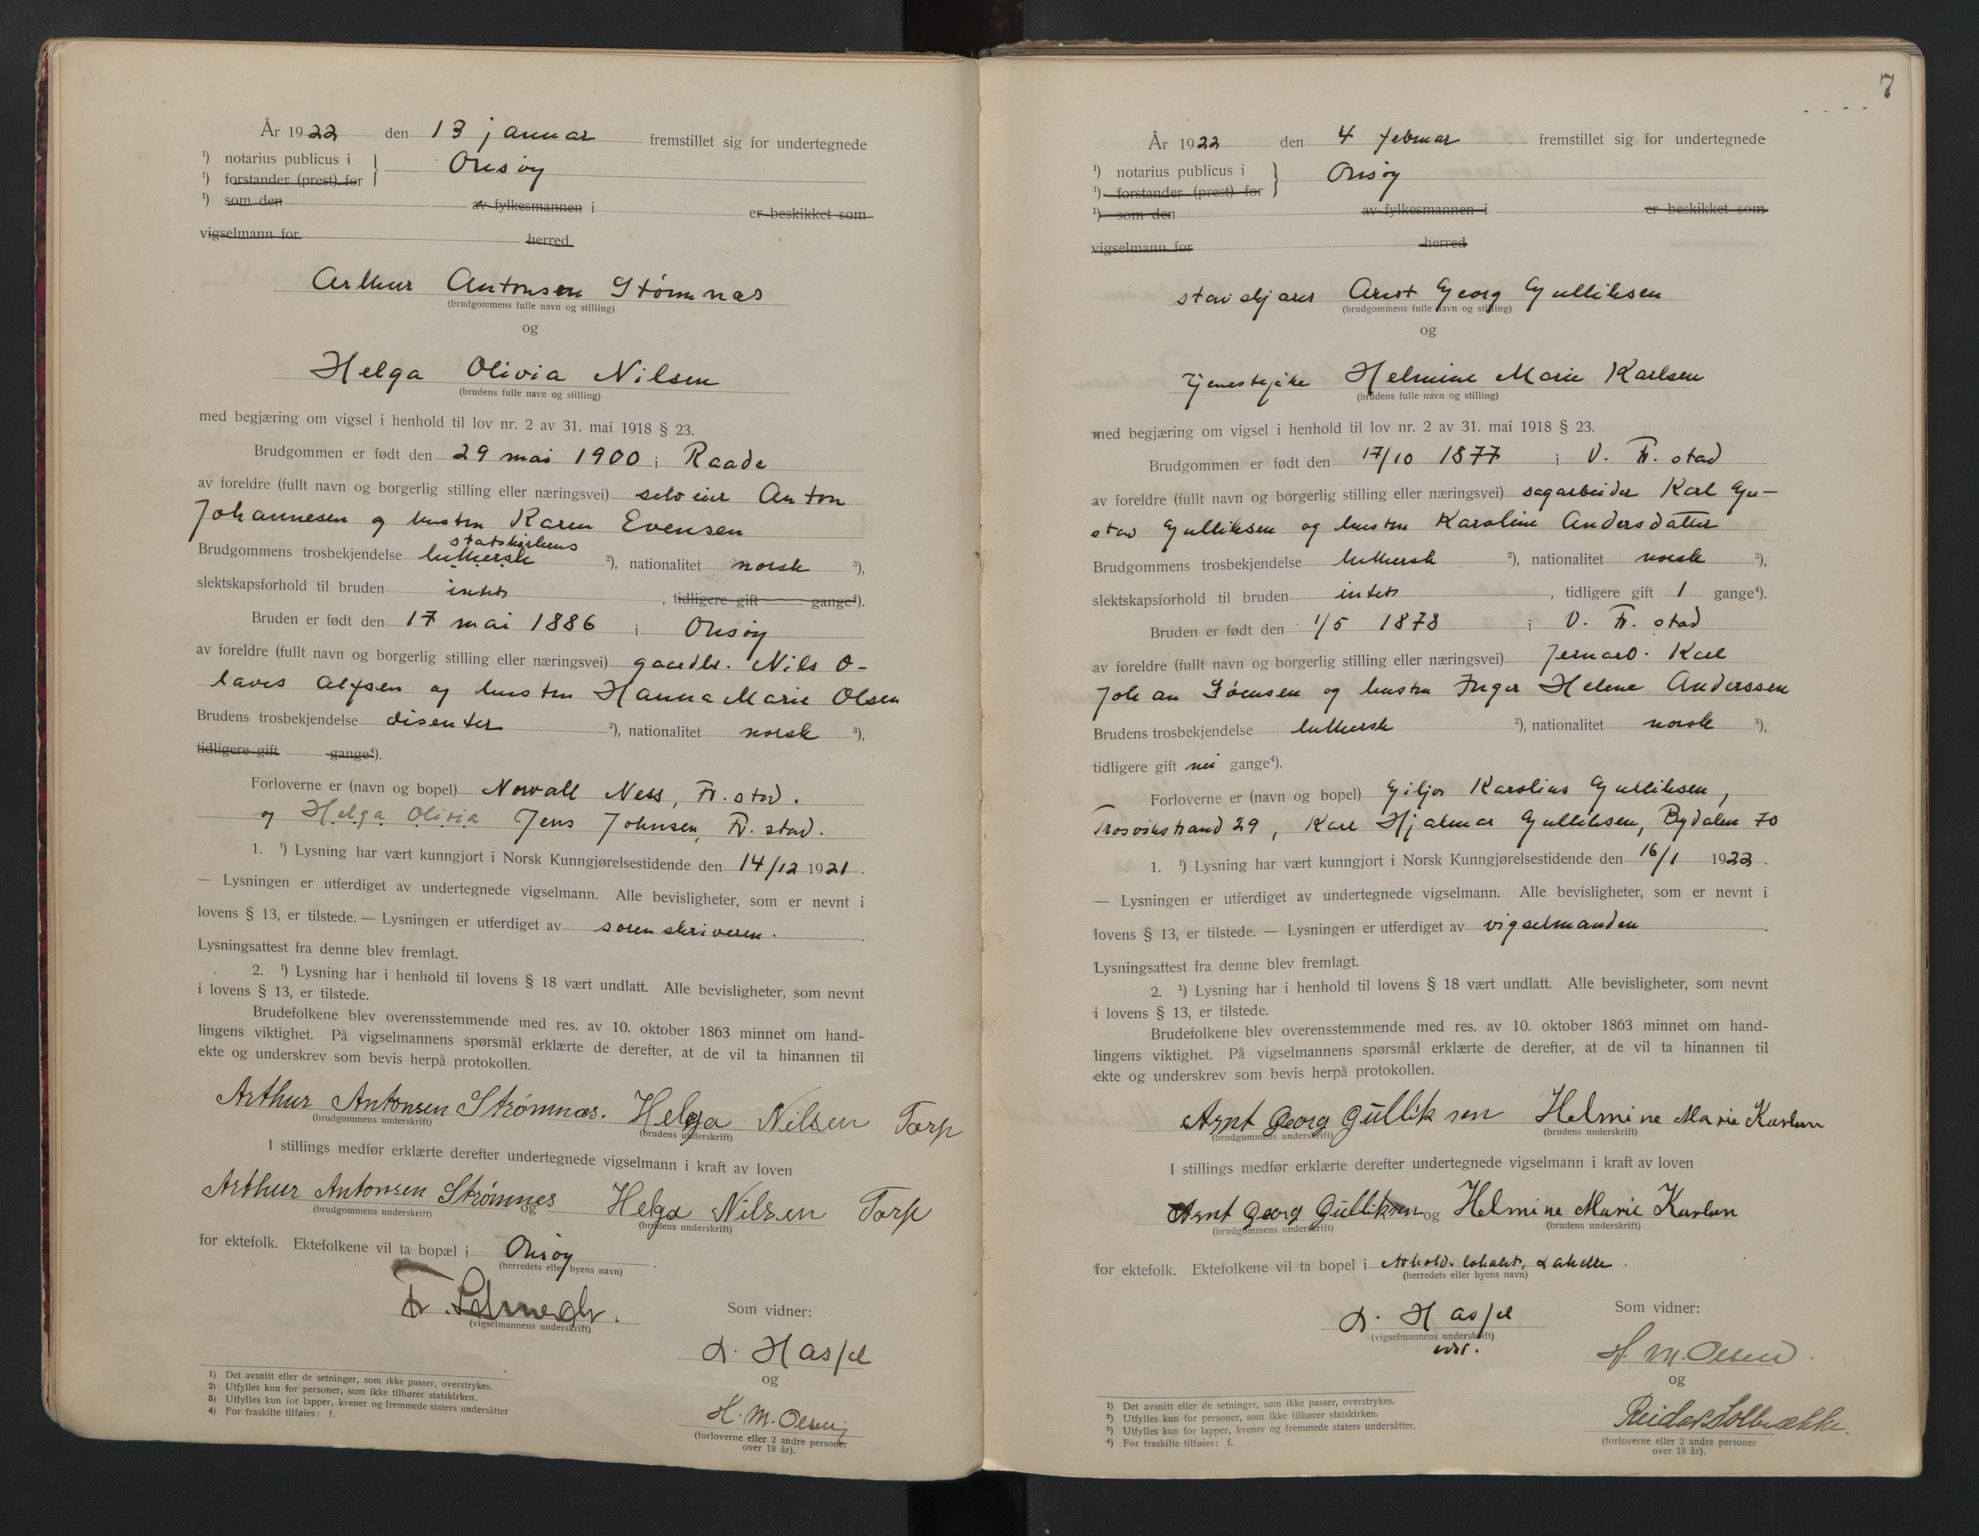 År 1922 den 13 januar fremstillet sig for undertegnede
¹) notarius publicus i } Onsøy
¹) forstander (prest) for
¹) som den av fylkesmannen i er beskikket som
vigselmann for herred
Arthur Antonsen Strømnæs
(brudgommens fulle navn og stilling)
og
Helga Olivia Nilsen
(brudens fulle navn og stilling)
med begjæring om vigsel i henhold til lov nr. 2 av 31. mai 1918 § 23.
Brudgommen er født den 29 mai 1900 i Raade
av foreldre (fullt navn og borgerlig stilling eller næringsvei) selveier Anton
Johannesen og hustru Karen Evensen
statskirkens
Brudgommens trosbekjendelse luthersk ²), nationalitet norsk ³),
slektskapsforhold til bruden intet , tidligere gift gange⁴).
Bruden er født den 17 mai 1886 i Onsøy
av foreldre (fullt navn og borgerlig stilling eller næringsvei) gaardbr. Nils O-
laves Alfsen og hustru Hanna Marie Olsen
Brudens trosbekjendelse disenter ²), nationalitet norsk ³),
tidligere gift gange⁴).
Forloverne er (navn og bopel) Norvall Ness, Fr.stad.
og Helga Olivia Jens Johnsen, Fr. stad.
1. ¹) Lysning har vært kunngjort i Norsk Kunngjørelsestidende den 14/12 1921.
— Lysningen er utferdiget av undertegnede vigselmann. Alle bevisligheter, som er nevnt i
lovens § 13, er tilstede. — Lysningen er utferdiget av sorenskriveren.
Lysningsattest fra denne blev fremlagt.
2. ¹) Lysning har i henhold til lovens § 18 vært undlatt. Alle bevisligheter, som nevnt
i lovens § 13, er tilstede.
Brudefolkene blev overensstemmende med res. av 10. oktober 1863 minnet om hand-
lingens viktighet. På vigselmannens spørsmål erklærte de derefter, at de vil ta hinannen til
ekte og underskrev som bevis herpå protokollen.
Arthur Antonsen Strømnæs. Helga Nilsen Torp
(brudgommens underskrift) (brudens underskrift)
I stillings medfør erklærte derefter undertegnede vigselmann i kraft av loven
Arthur Antonsen Strømnes og Helga Nilsen Torp
(brudgommens underskrift) (brudens underskrift)
for ektefolk. Ektefolkene vil ta bopæl i Onsøy
(herredets eller byens navn)
(vigselmannens underskrift)
Som vidner:
L. Hassel
og
H. M. Olsen
(forloverne eller 2 andre personer
over 18 år).
¹) Det avsnitt eller de setninger, som ikke passer, overstrykes.
²) Utfylles kun for personer, som ikke tilhører statskirken.
³) Utfylles kun for lapper, kvener og fremmede staters undersåtter
⁴) For fraskilte tilføies: f.
7
År 1922 den 4 februar fremstillet sig for undertegnede
¹) notarius publicus i } Onsøy
¹) forstander (prest) for
¹) som den av fylkesmannen i er beskikket som
vigselmann for herred
stavskjærer Arnt Georg Gulliksen
(brudgommens fulle navn og stilling)
og
Tjenestepike Helmine Marie Karlsen
(brudens fulle navn og stilling)
med begjæring om vigsel i henhold til lov nr. 2 av 31. mai 1918 § 23.
Brudgommen er født den 17/10 1877 i V. Fr. stad
av foreldre (fullt navn og borgerlig stilling eller næringsvei) sagarbeider Karl Gu-
stav Gulliksen og hustru Karoline Andersdatter
Brudgommens trosbekjendelse luthersk ²), nationalitet norsk ³),
slektskapsforhold til bruden intet , tidligere gift 1 gange⁴).
Bruden er født den 1/5 1878 i V. Fr. stad
av foreldre (fullt navn og borgerlig stilling eller næringsvei) jernarb. Karl
Johan Sørensen og hustru Inger Helene Anderssen
Brudens trosbekjendelse luthersk ²), nationalitet norsk ³),
tidligere gift nei gange⁴).
Forloverne er (navn og bopel) Karolius Gulliksen,
Trosvikstrand 29, Karl Hjalmar Gulliksen, Bydalen 70
1. ¹) Lysning har vært kunngjort i Norsk Kunngjørelsestidende den 16/1 1922.
— Lysningen er utferdiget av undertegnede vigselmann. Alle bevisligheter, som er nevnt i
lovens § 13, er tilstede. — Lysningen er utferdiget av vigselmanden.
Lysningsattest fra denne blev fremlagt.
2. ¹) Lysning har i henhold til lovens § 18 vært undlatt. Alle bevisligheter, som nevnt
i lovens § 13, er tilstede.
Brudefolkene blev overensstemmende med res. av 10. oktober 1863 minnet om hand-
lingens viktighet. På vigselmannens spørsmål erklærte de derefter, at de vil ta hinannen til
ekte og underskrev som bevis herpå protokollen.
Arnt Georg Gulliksen Helmine Marie Karlsen
(brudgommens underskrift) (brudens underskrift)
I stillings medfør erklærte derefter undertegnede vigselmann i kraft av loven
Arnt Georg Gulliksen og Helmine Marie Karlsen
(brudgommens underskrift) (brudens underskrift)
for ektefolk. Ektefolkene vil ta bopel i Avholdslokalet, Lahelle.
(herredets eller byens navn)
L. Hassel
(vigselmannens underskrift)
edsv.
Som vidner:
H. M. Olsen.
og
Reidar Solbrække.
(forloverne eller 2 andre personer
over 18 år).
¹) Det avsnitt eller de setninger, som ikke passer, overstrykes.
²) Utfylles kun for personer, som ikke tilhører statskirken.
³) Utfylles kun for lapper, kvener og fremmede staters undersåtter.
⁴) For fraskilte tilføies: f.